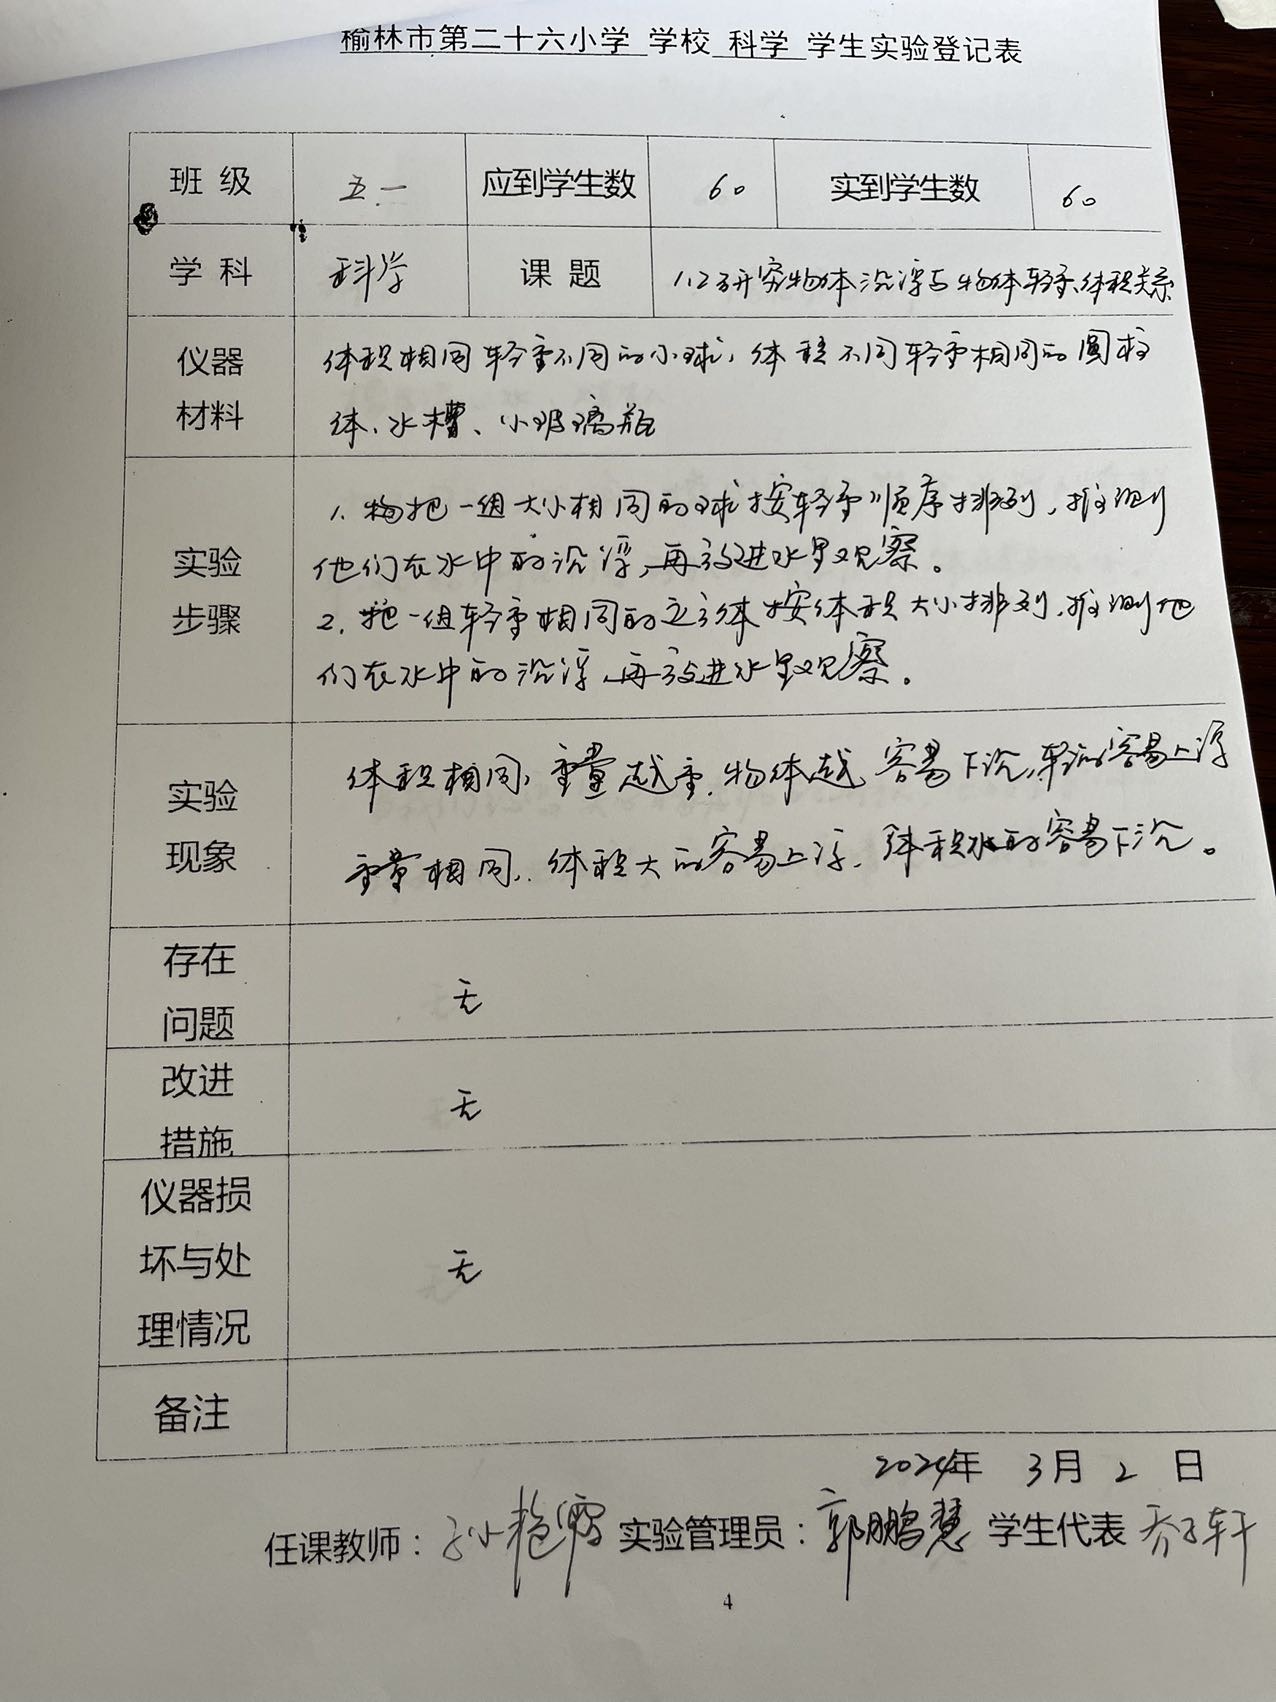 榆林市第二十六小学 学校 科学 学生实验登记表
班级 五.一 应到学生数 60 实到学生数 60
学科 科学 课题 1.2研究物体沉浮与物体轻重、体积关系
仪器材料
体积相同轻重不同的小球，体积不同轻重相同的圆柱
体、水槽、小玻璃瓶
实验步骤
1. 把一组大小相同的球按轻重顺序排列，推测
他们在水中的沉浮，再放进水里观察。
2. 把一组轻重相同的立方体按体积大小排列，推测他
们在水中的沉浮，再放进水里观察。
实验现象
体积相同，重量越重，物体越容易下沉，轻的容易上浮
重量相同，体积大的容易上浮，体积小的容易下沉。
存在问题
无
改进措施
无
仪器损坏与处理情况
无
备注
2024年 3月 2 日
任课教师： 实验管理员：郭鹏慧 学生代表 乔子轩
4